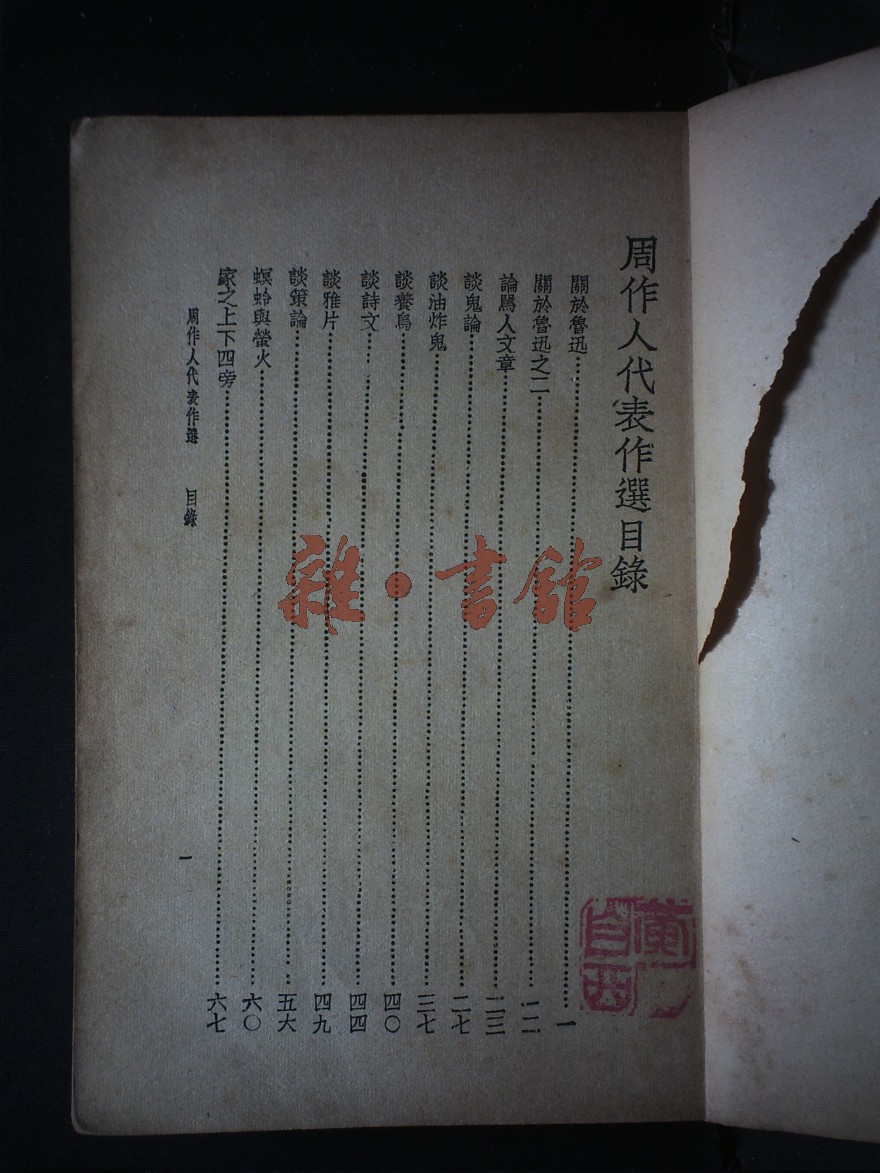 周作人代表作選目錄
關於魯迅…………一
關於魯迅之二…………一二
論罵人文章…………二三
談鬼論…………二七
談油炸鬼…………三七
談養鳥…………四〇
談詩文…………四四
談雅片…………四九
談策論…………五六
螟蛉與螢火…………六〇
家之上下四旁…………六七
周作人代表作選 目錄
一
雜·書館